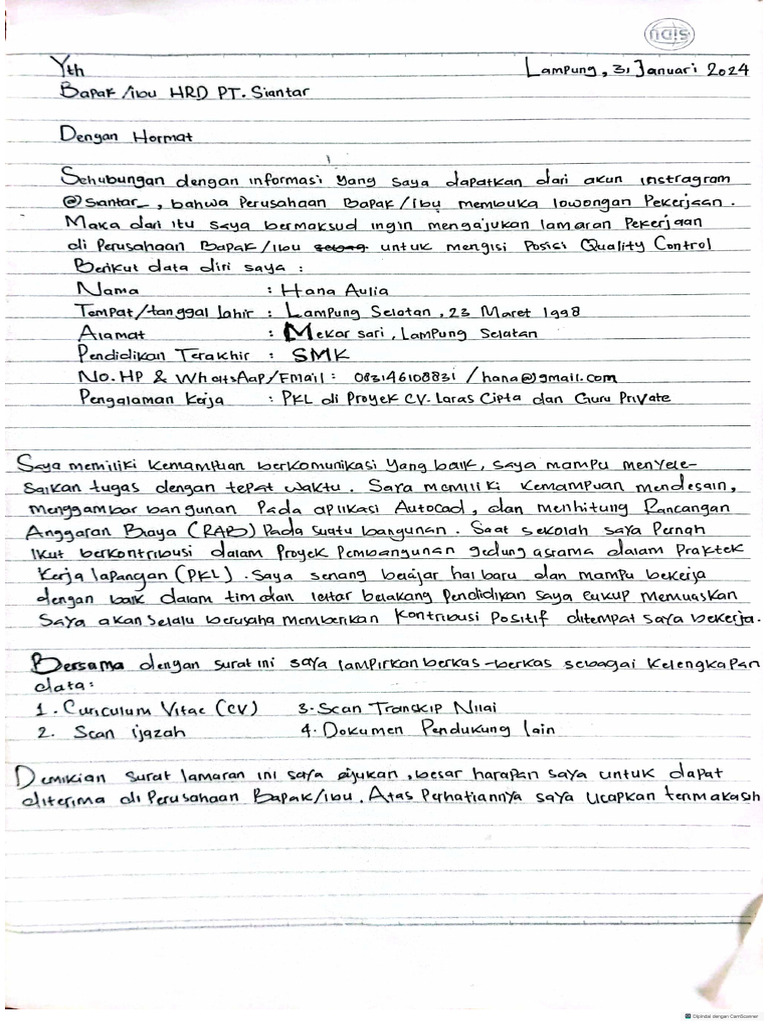 ndis
Lampung, 31 Januari 2024
Yth
Bapak/ibu HRD PT. Siantar
Dengan Hormat
Sehubungan dengan informasi yang saya dapatkan dari akun instragram
@siantar_, bahwa Perusahaan Bapak/ibu membuka lowongan Pekerjaan.
Maka dari itu saya bermaksud ingin mengajukan lamaran Pekerjaan
di Perusahaan Bapak/ibu untuk mengisi Posisi Quality Control
Berikut data diri saya :
Nama : Hana Aulia
Tempat/tanggal lahir : Lampung Selatan, 23 Maret 1998
Alamat : Mekar sari, Lampung Selatan
Pendidikan Terakhir : SMK
No. HP & WhatsAap/Email : 083146108831 / hana@gmail.com
Pengalaman Kerja : PKL di Proyek CV. Laras Cipta dan Guru Private
Saya memiliki kemampuan berkomunikasi yang baik, saya mampu menyele-
saikan tugas dengan tepat waktu. Saya memiliki kemampuan mendesain,
menggambar bangunan Pada aplikasi Autocad, dan menhitung Rancangan
Anggaran Biaya (RAB) Pada suatu bangunan. Saat sekolah saya Pernah
ikut berkontribusi dalam Proyek Pembangunan gedung asrama dalam Praktek
kerja lapangan (PKL). Saya senang belajar hal baru dan mampu bekerja
dengan baik dalam tim dan latar belakang Pendidikan saya cukup memuaskan
Saya akan selalu berusaha memberikan kontribusi Positif ditempat saya bekerja.
Bersama dengan surat ini saya lampirkan berkas-berkas sebagai kelengkapan
data:
1. Curiculum Vitae (CV) 3. Scan Transkip Nilai
2. Scan ijazah 4. Dokumen Pendukung lain
Demikian surat lamaran ini saya ajukan, besar harapan saya untuk dapat
diterima di Perusahaan Bapak/ibu. Atas Perhatiannya saya ucapkan terimakasih
Dipindai dengan CamScanner